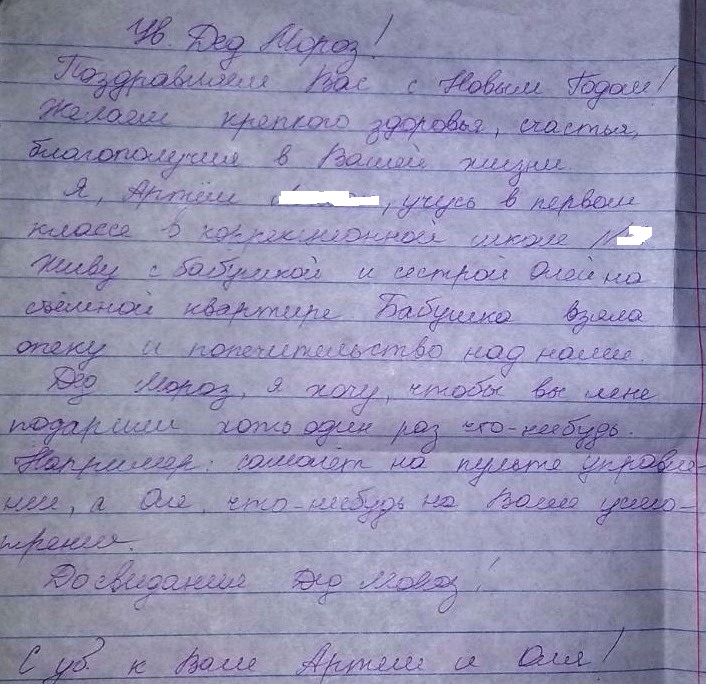 Ув. Дед Мороз!
Поздравляем Вас с Новым Годом!
Желаем крепкого здоровья, счастья,
благополучия в Вашей жизни.
Я, Артём , учусь в первом
классе в коррекционной школе №
Живу с бабушкой и сестрой Олей на
съёмной квартире Бабушка взяла
опеку и попечительство над нами.
Дед Мороз, я хочу, чтобы вы мне
подарили хоть один раз что-нибудь.
Например: самолёт на пульте управле-
нии, а Оле, что-нибудь на Ваше усмо-
трения.
Досвидания Дед Мороз!
С ув. к Вам Артём и Оля!